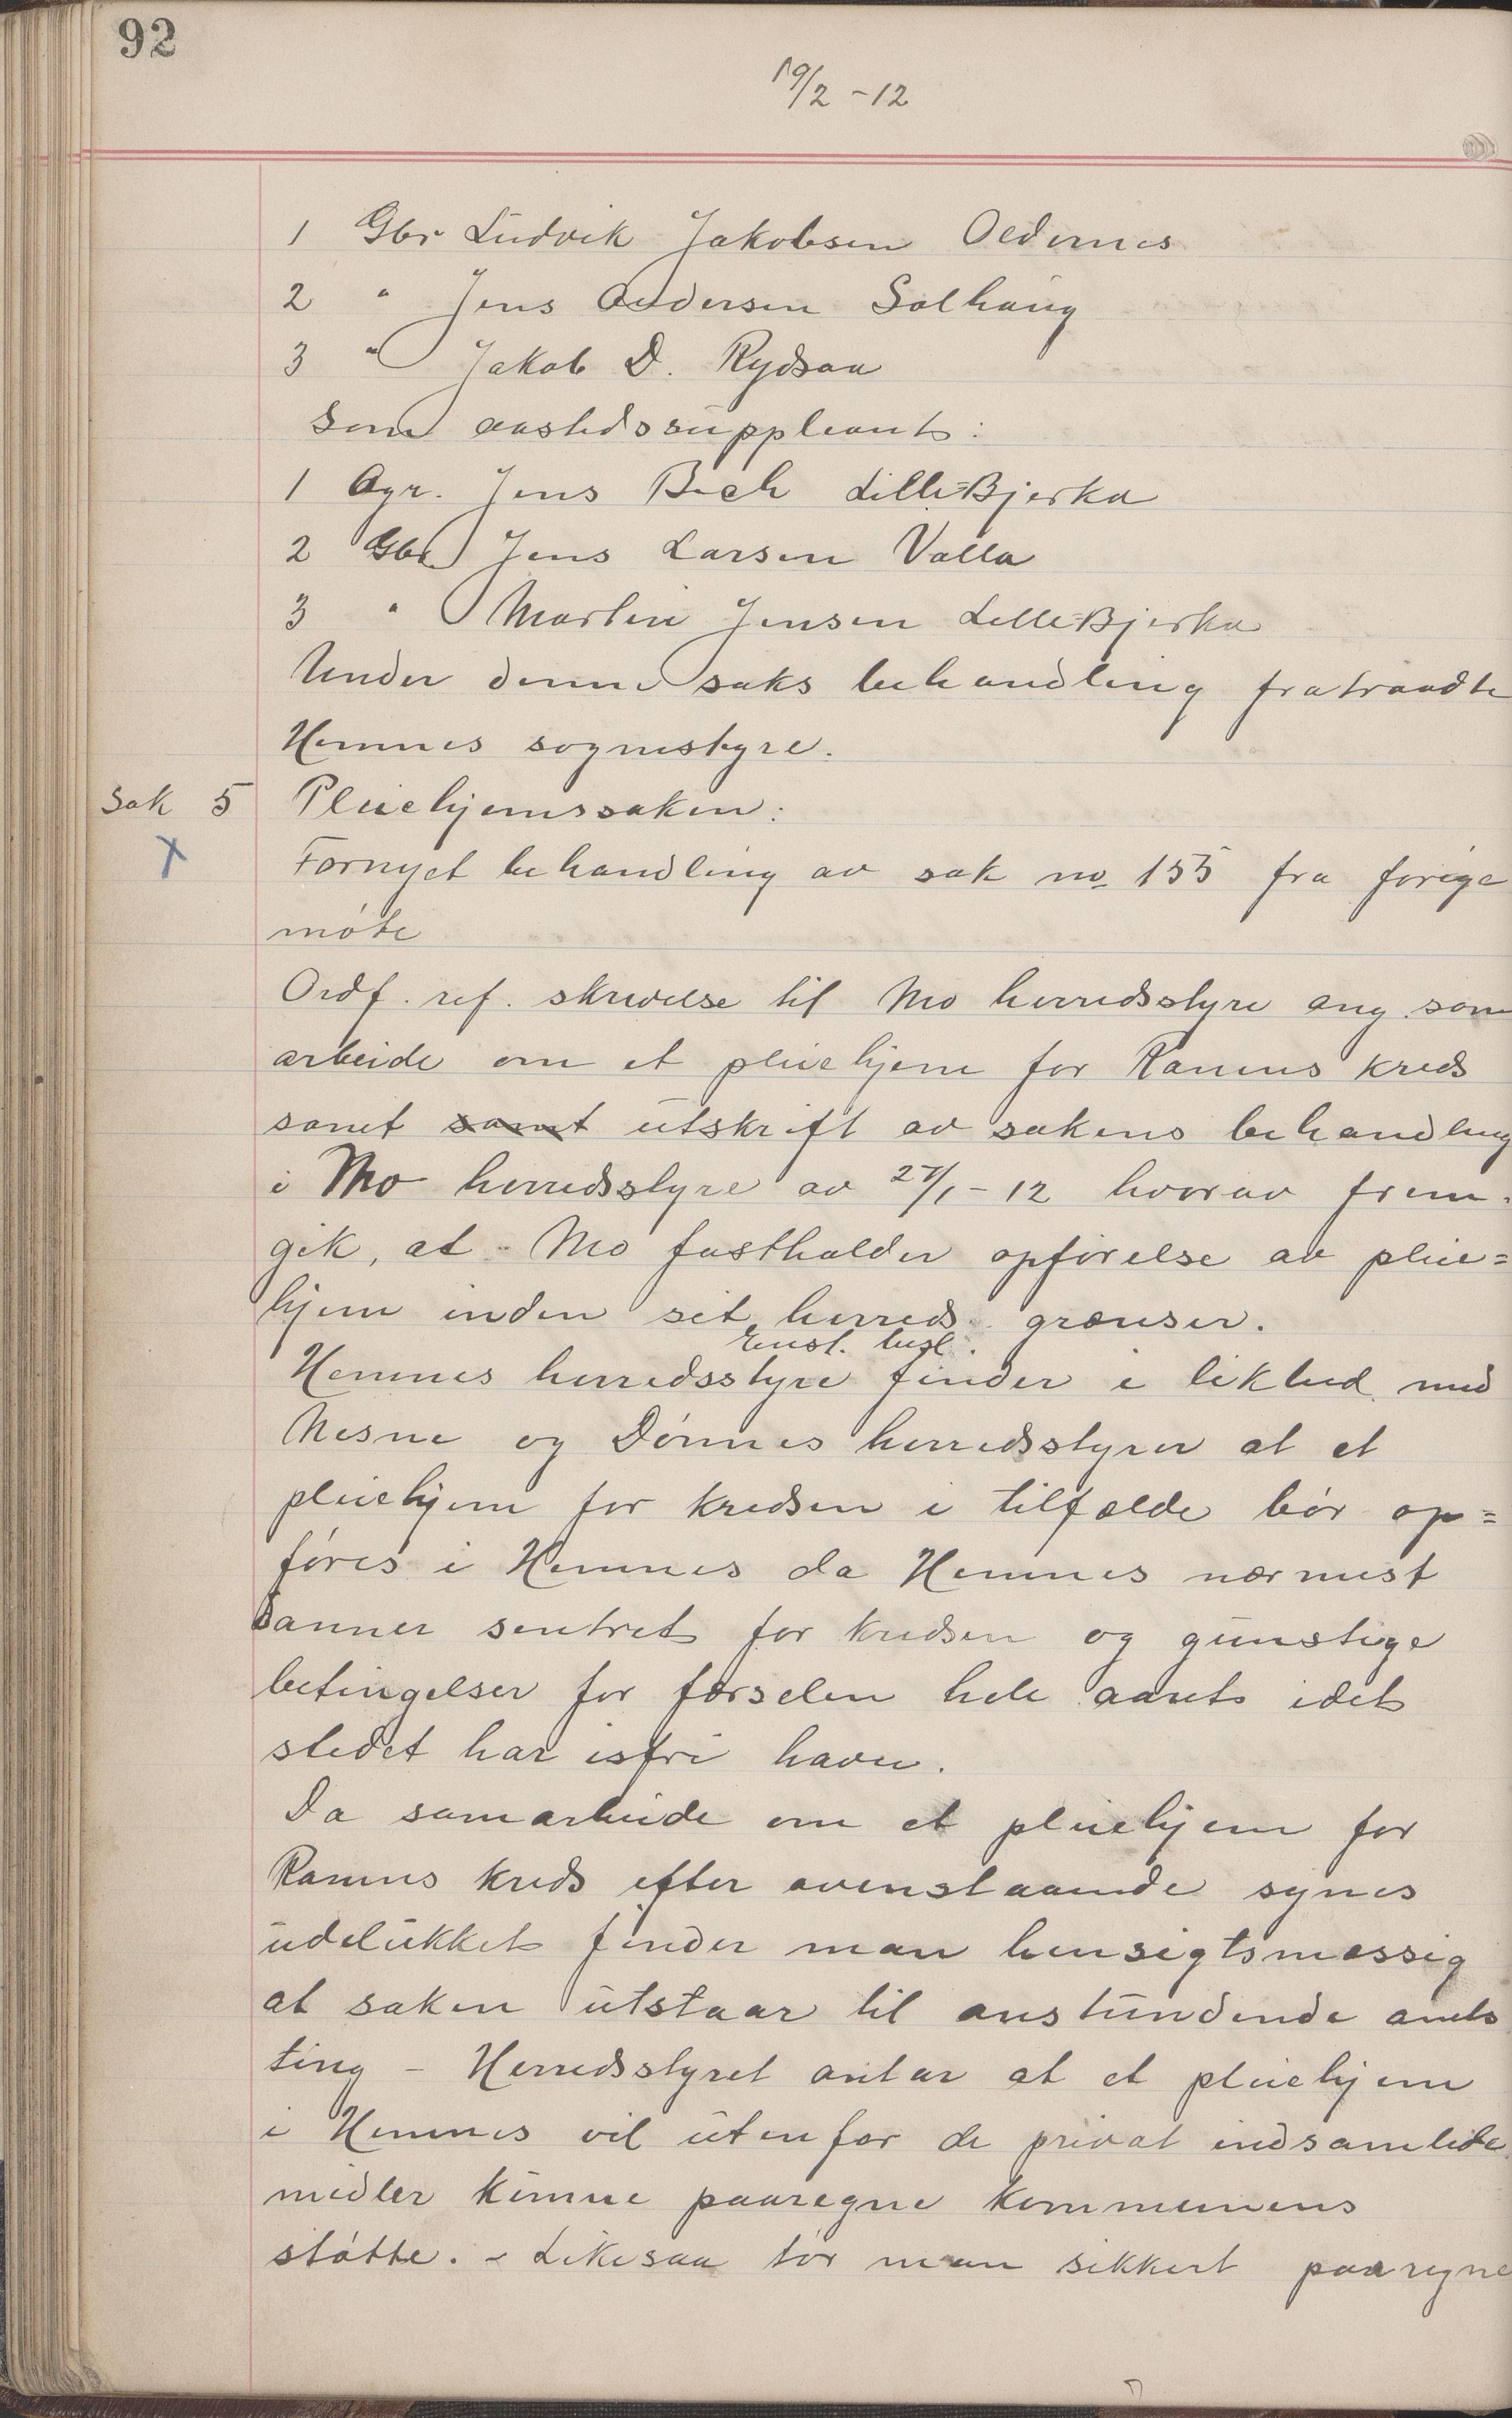 92
19/2 - 12
1 Gbr Ludvik Jakobsen Oldernes
2 " Jens Andersen Solhaug
3 " Jakob D. Rydsaa
Som aastedssuppleants:
1 Agr. Jens Bech Lille=Bjerka
2 Gbr Jens Larsen Valla
3 " Martin Jensen Lille=Bjerka
Under denne saks behandling fratraadte
Hemnes sognestyre.
Sak 5 Pleiehjemssaken:
x Fornyet behandling av sak no 155 fra forige
møte
Ordf. ref. skrivelse til Mo herredsstyre ang. sam
arbeide om et pleiehjem for Ranens kreds
samt samt utskrift av sakens behandling
i Mo herredsstyre av 27/1 - 12 hvorav frem-
gik, at Mo fastholder opførelse av pleie=
hjem inden sit herreds grænser.
Enst. besl.
Hemnes herredsstyre finder i likhed med
Nesne og Dønnes herredsstyrer at et
pleiehjem for kredsen i tilfælde bør op=
føres i Hemnes da Hemnes nærmest
danner sentret for kredsen og gunstige
betingelser for færselen hele aaret idet
stedet har isfri havn.
Da samarbeide om et pleiehjem for
Ranens kreds efter ovenstaaende synes
udelukket finder man hensigtsmæssig
at saken utstaar til anstundende amts
ting - Herredsstyret antar at et pleiehjem
i Hemnes vil utenfor de privat indsamlede
midler kunne paaregne kommunens
støtte. - Likesaa tør man sikkert paaregne